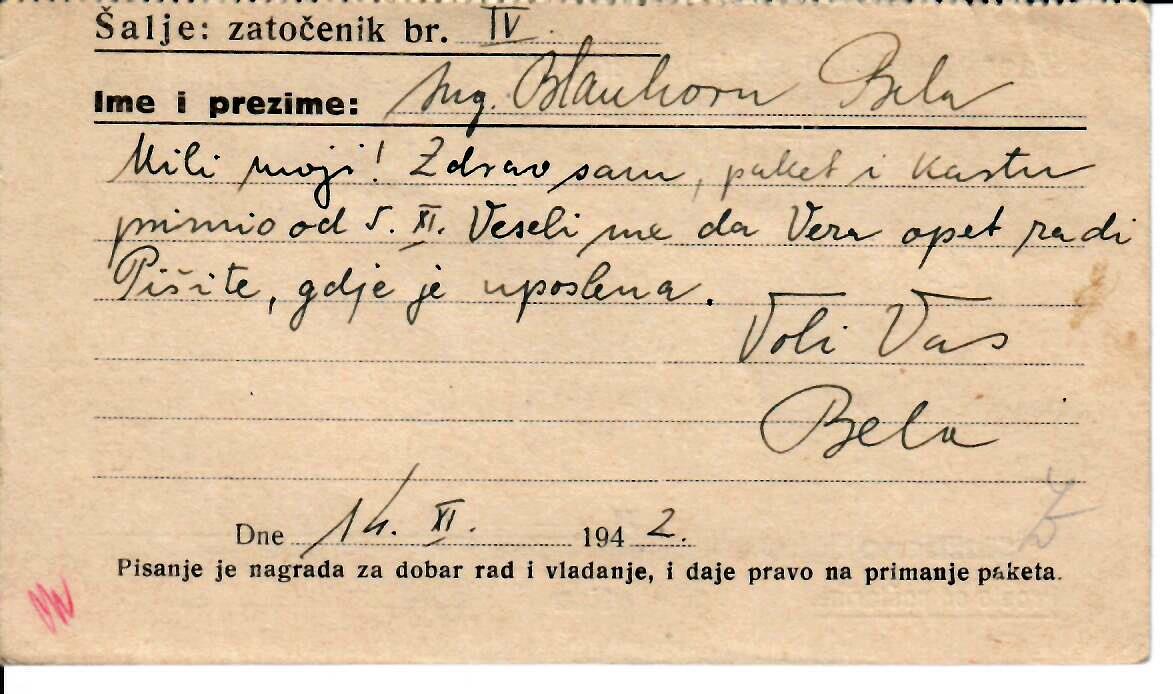 Šalje: zatočenik br. IV.
Ime i prezime: Ing. Blauhorn Bela
Mili moji! Zdrav sam, paket i kartu
primio od 5. XI. Veseli me da Vera opet radi
Pišite, gdje je uposlena.
Voli Vas
Bela
Dne 14. XI. 1942.
Pisanje je nagrada za dobar rad i vladanje, i daje pravo na primanje paketa.